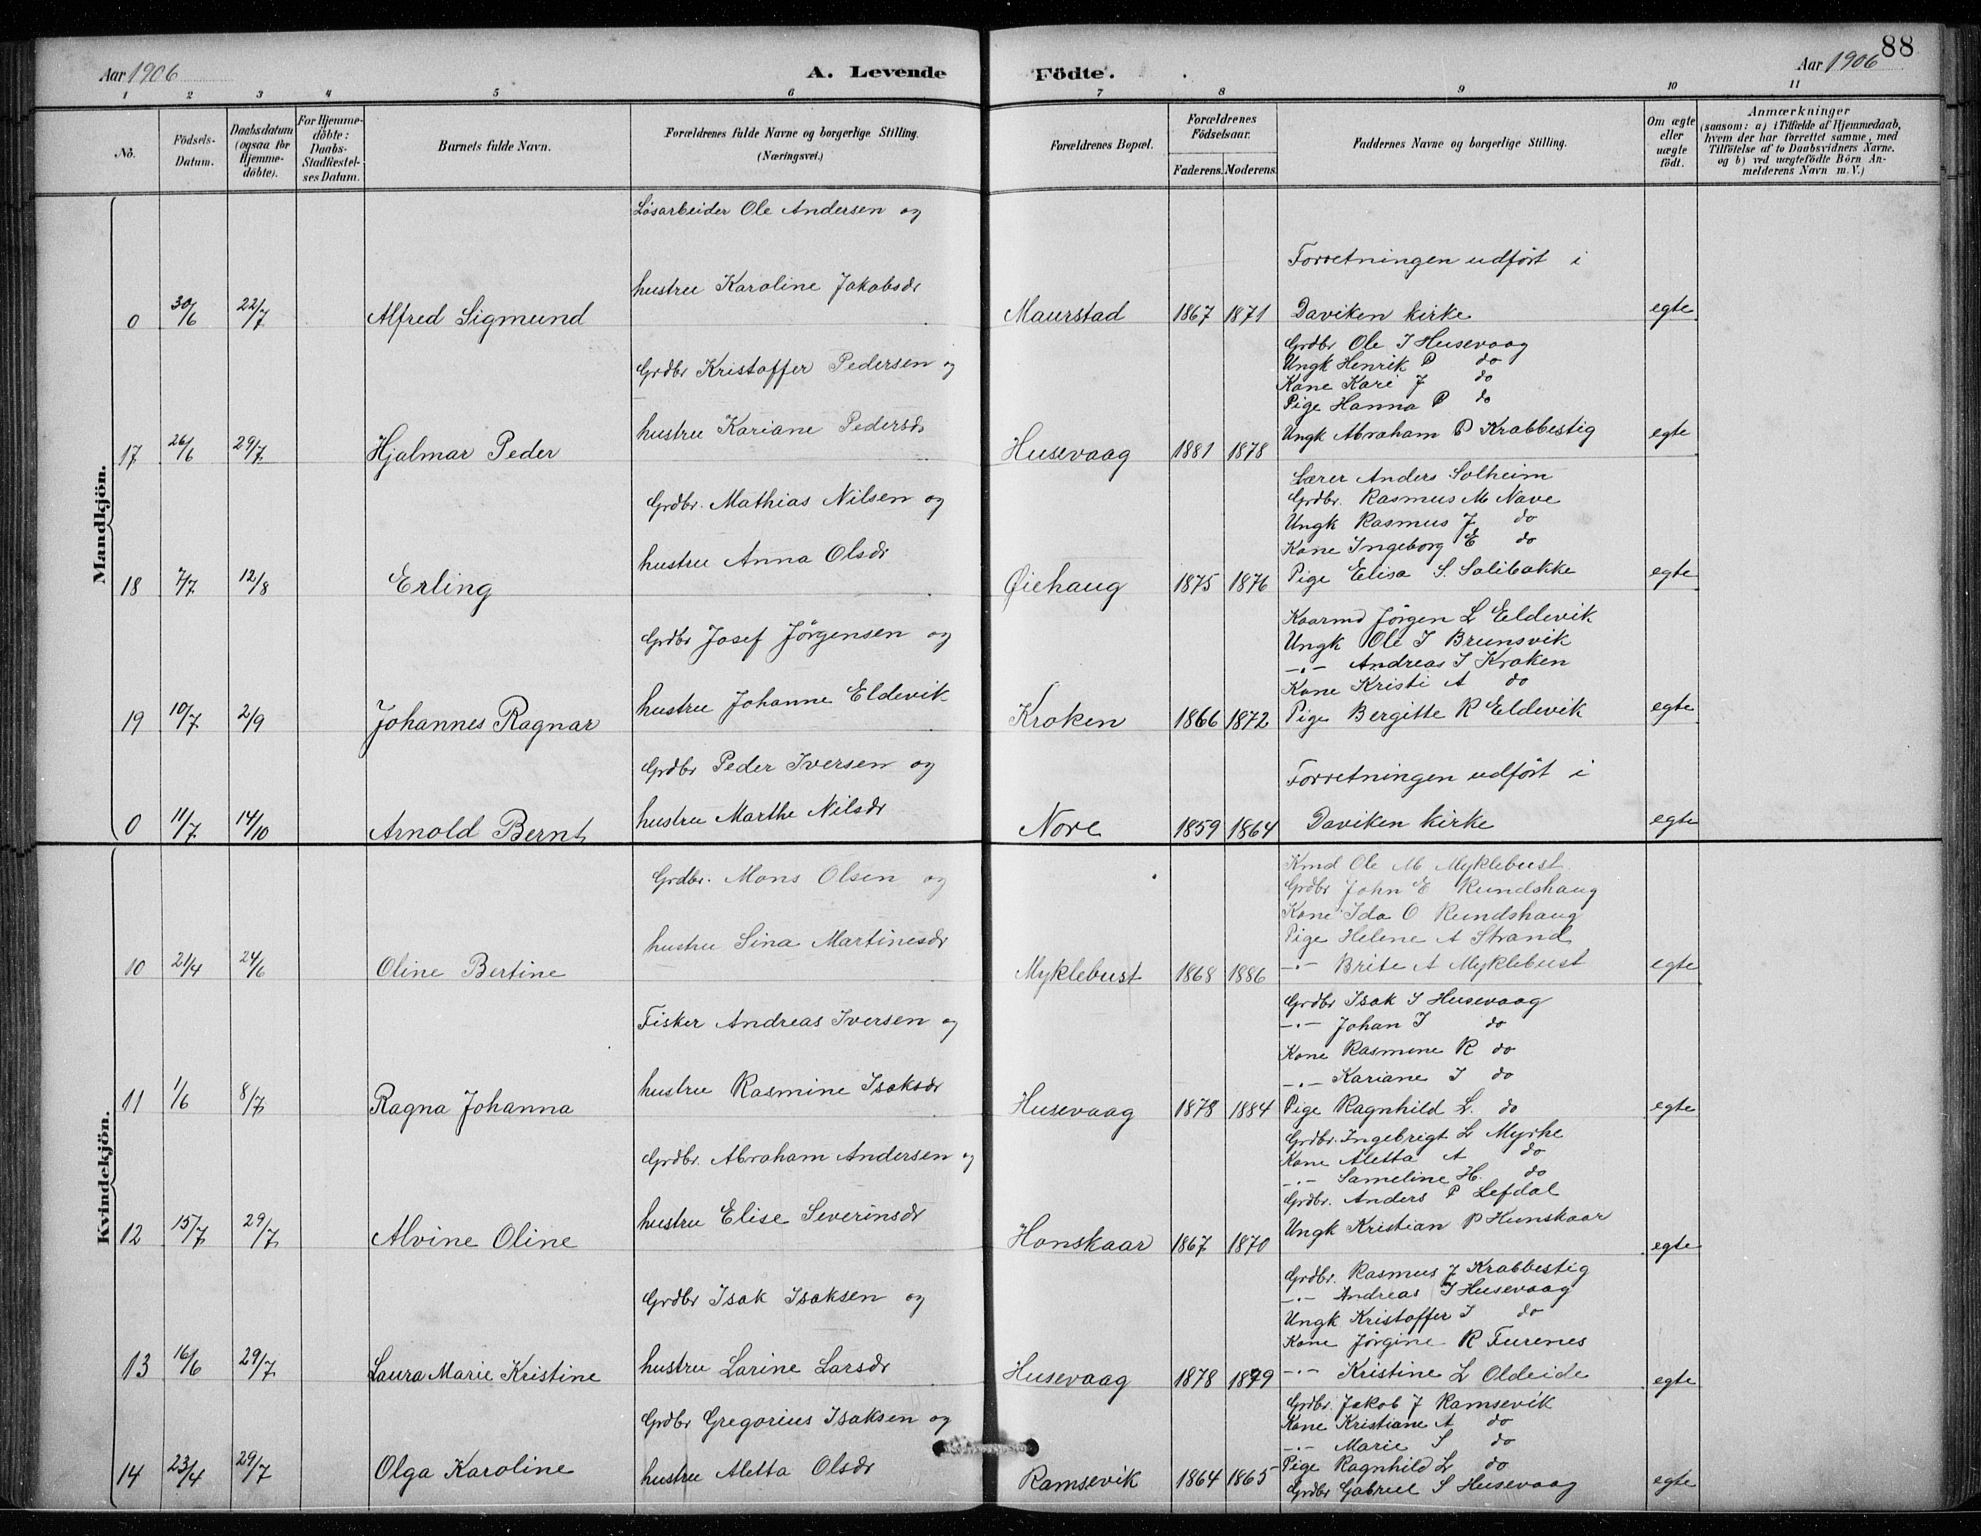 88
Aar 1906
A. Levende
Födte.
Aar 1906
1 2 3 4 5 6 7 8 9 10 11
No.
Födsels-Datum.
Daabsdatum (ogsaa for Hjemme-döbte).
For Hjemme-döbte: Daabs-Stadfæstel-ses Datum.
Barnets fulde Navn.
Forældrenes fulde Navne og borgerlige Stilling.
(Næringsvei.)
Forældrenes Bopæl.
Forældrenes Födselsaar.
Faderens. Moderens.
Faddernes Navne og borgerlige Stilling.
Om ægte eller uægte födt.
Anmærkninger
(saasom: a) i Tilfælde af Hjemmedaab,
hvem der har forrettet samme, med
Tilföielse af to Daabsvidners Navne.
og b) ved uægtefödte Börn An-
melderens Navn m. V.)
Mandkjön.
Lösarbeider Ole Andersen og
hustru Karoline Jakobsdr
0 30/6 22/7 Alfred Sigmund
Maurstad 1867 1871
Forretningen udfört i
Daviken kirke
egte
Grdbr Kristoffer Pedersen og
hustru Kariane Pedersdr
17 26/6 29/7 Hjalmar Peder
Husevaag 1881 1878
Grdbr Ole J Husevaag
Ungk Henrik P do
Kone Kari J do
Pige Hanna P do
Ungk Abraham P Krabbestig
egte
Grdbr. Mathias Nilsen og
hustru Anna Olsdr
18 7/7 12/8 Erling
Øiehaug 1875 1876
Lærer Anders Solheim
Grdbr. Rasmus M Nave
Ungk Rasmus J do
Kone Ingeborg E do
Pige Elisa S. Solibakke
egte
Grdbr Josef Jörgensen og
hustru Johanne Eldevik
19 10/7 2/9 Johannes Ragnar
Kroken 1866 1872
Kaarmd Jörgen L Eldevik
Ungk Ole J Brunsvik
-"- Andreas J Kroken
Kone Kristi A do
Pige Bergitte R Eldevik
egte
Grdbr Peder Iversen og
hustru Marthe Nilsdr
0 11/7 14/10 Arnold Bernt
Nore 1859 1864
Forretningen udfört i
Daviken kirke
egte
Kvindekjön.
Grdbr. Mons Olsen og
hustru Sina Martinesdr
10 21/4 24/6 Oline Bertine
Myklebust 1868 1886
Kmd Ole M Myklebust
Grdbr John E Rundshaug
Kone Ida O Rundshaug
Pige Helene A Strand
-"- Brite A Myklebust
egte
Fisker Andreas Iversen og
hustru Rasmine Isaksdr
11 1/6 8/7 Ragna Johanna
Husevaag 1878 1884
Grdbr Isak I Husevaag
-"- Johan I do
Kone Rasmine R do
-"- Kariane I do
Pige Ragnhild L. do
egte
Grdbr. Abraham Andersen og
hustru Elise Severinsdr
12 15/7 29/7 Alvine Oline
Honskaar 1867 1870
Grdbr. Ingebrigt L Myrhe
Kone Aletta A do
-"- Sameline H. do
Grdbr. Anders P Lefdal
Ungk Kristian P Hunskaar
egte
Grdbr Isak Isaksen og
hustru Larine Larsdr
13 16/6 29/7 Laura Marie Kristine
Husevaag 1878 1879
Grdbr. Rasmus J Krabbestig
-"- Andreas I Husevaag
Ungk Kristoffer I do
Kone Jørgine R Furenes
-"- Kristine L Oldeide
egte
Grdbr Gregorius Isaksen og
hustru Aletta Olsdr
14 23/4 29/7 Olga Karoline
Ramsevik 1864 1865
Grdbr. Jakob J Ramsevik
Kone Kristiane A do
-"- Marie S do
Pige Ragnhild L do
Grdbr Gabriel S Husevaag
egte